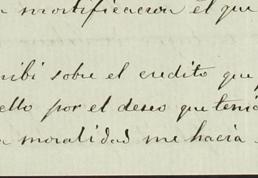 mortificacion el que
ribi sobre el credito que
ello por el deseo que tenia
a moralidad me hacia